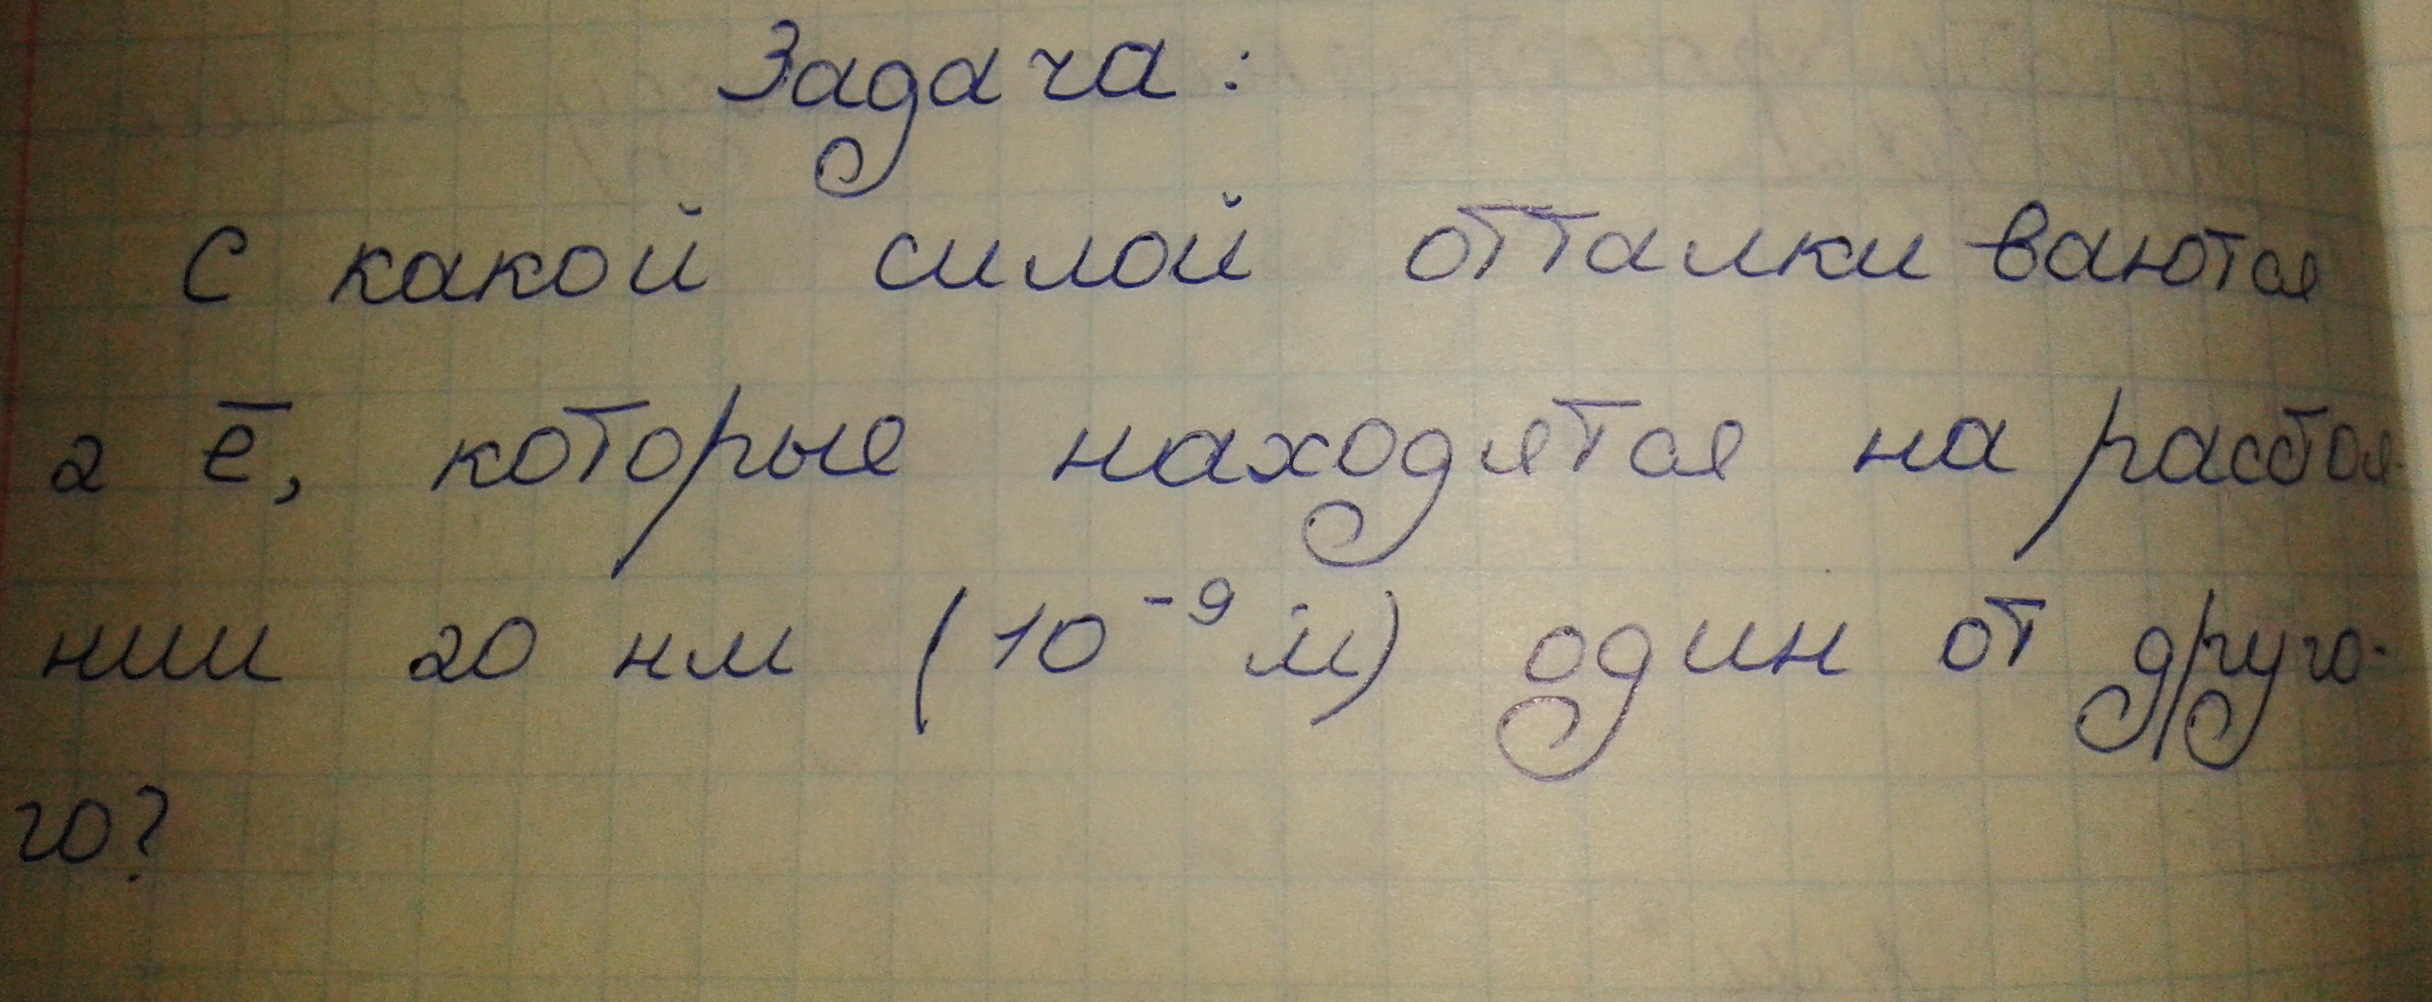 Задача:
С какой силой отталкиваются
2 ē, которые находятся на расстоя-
нии 20 нм (10⁻⁹ м) один от друго-
го?